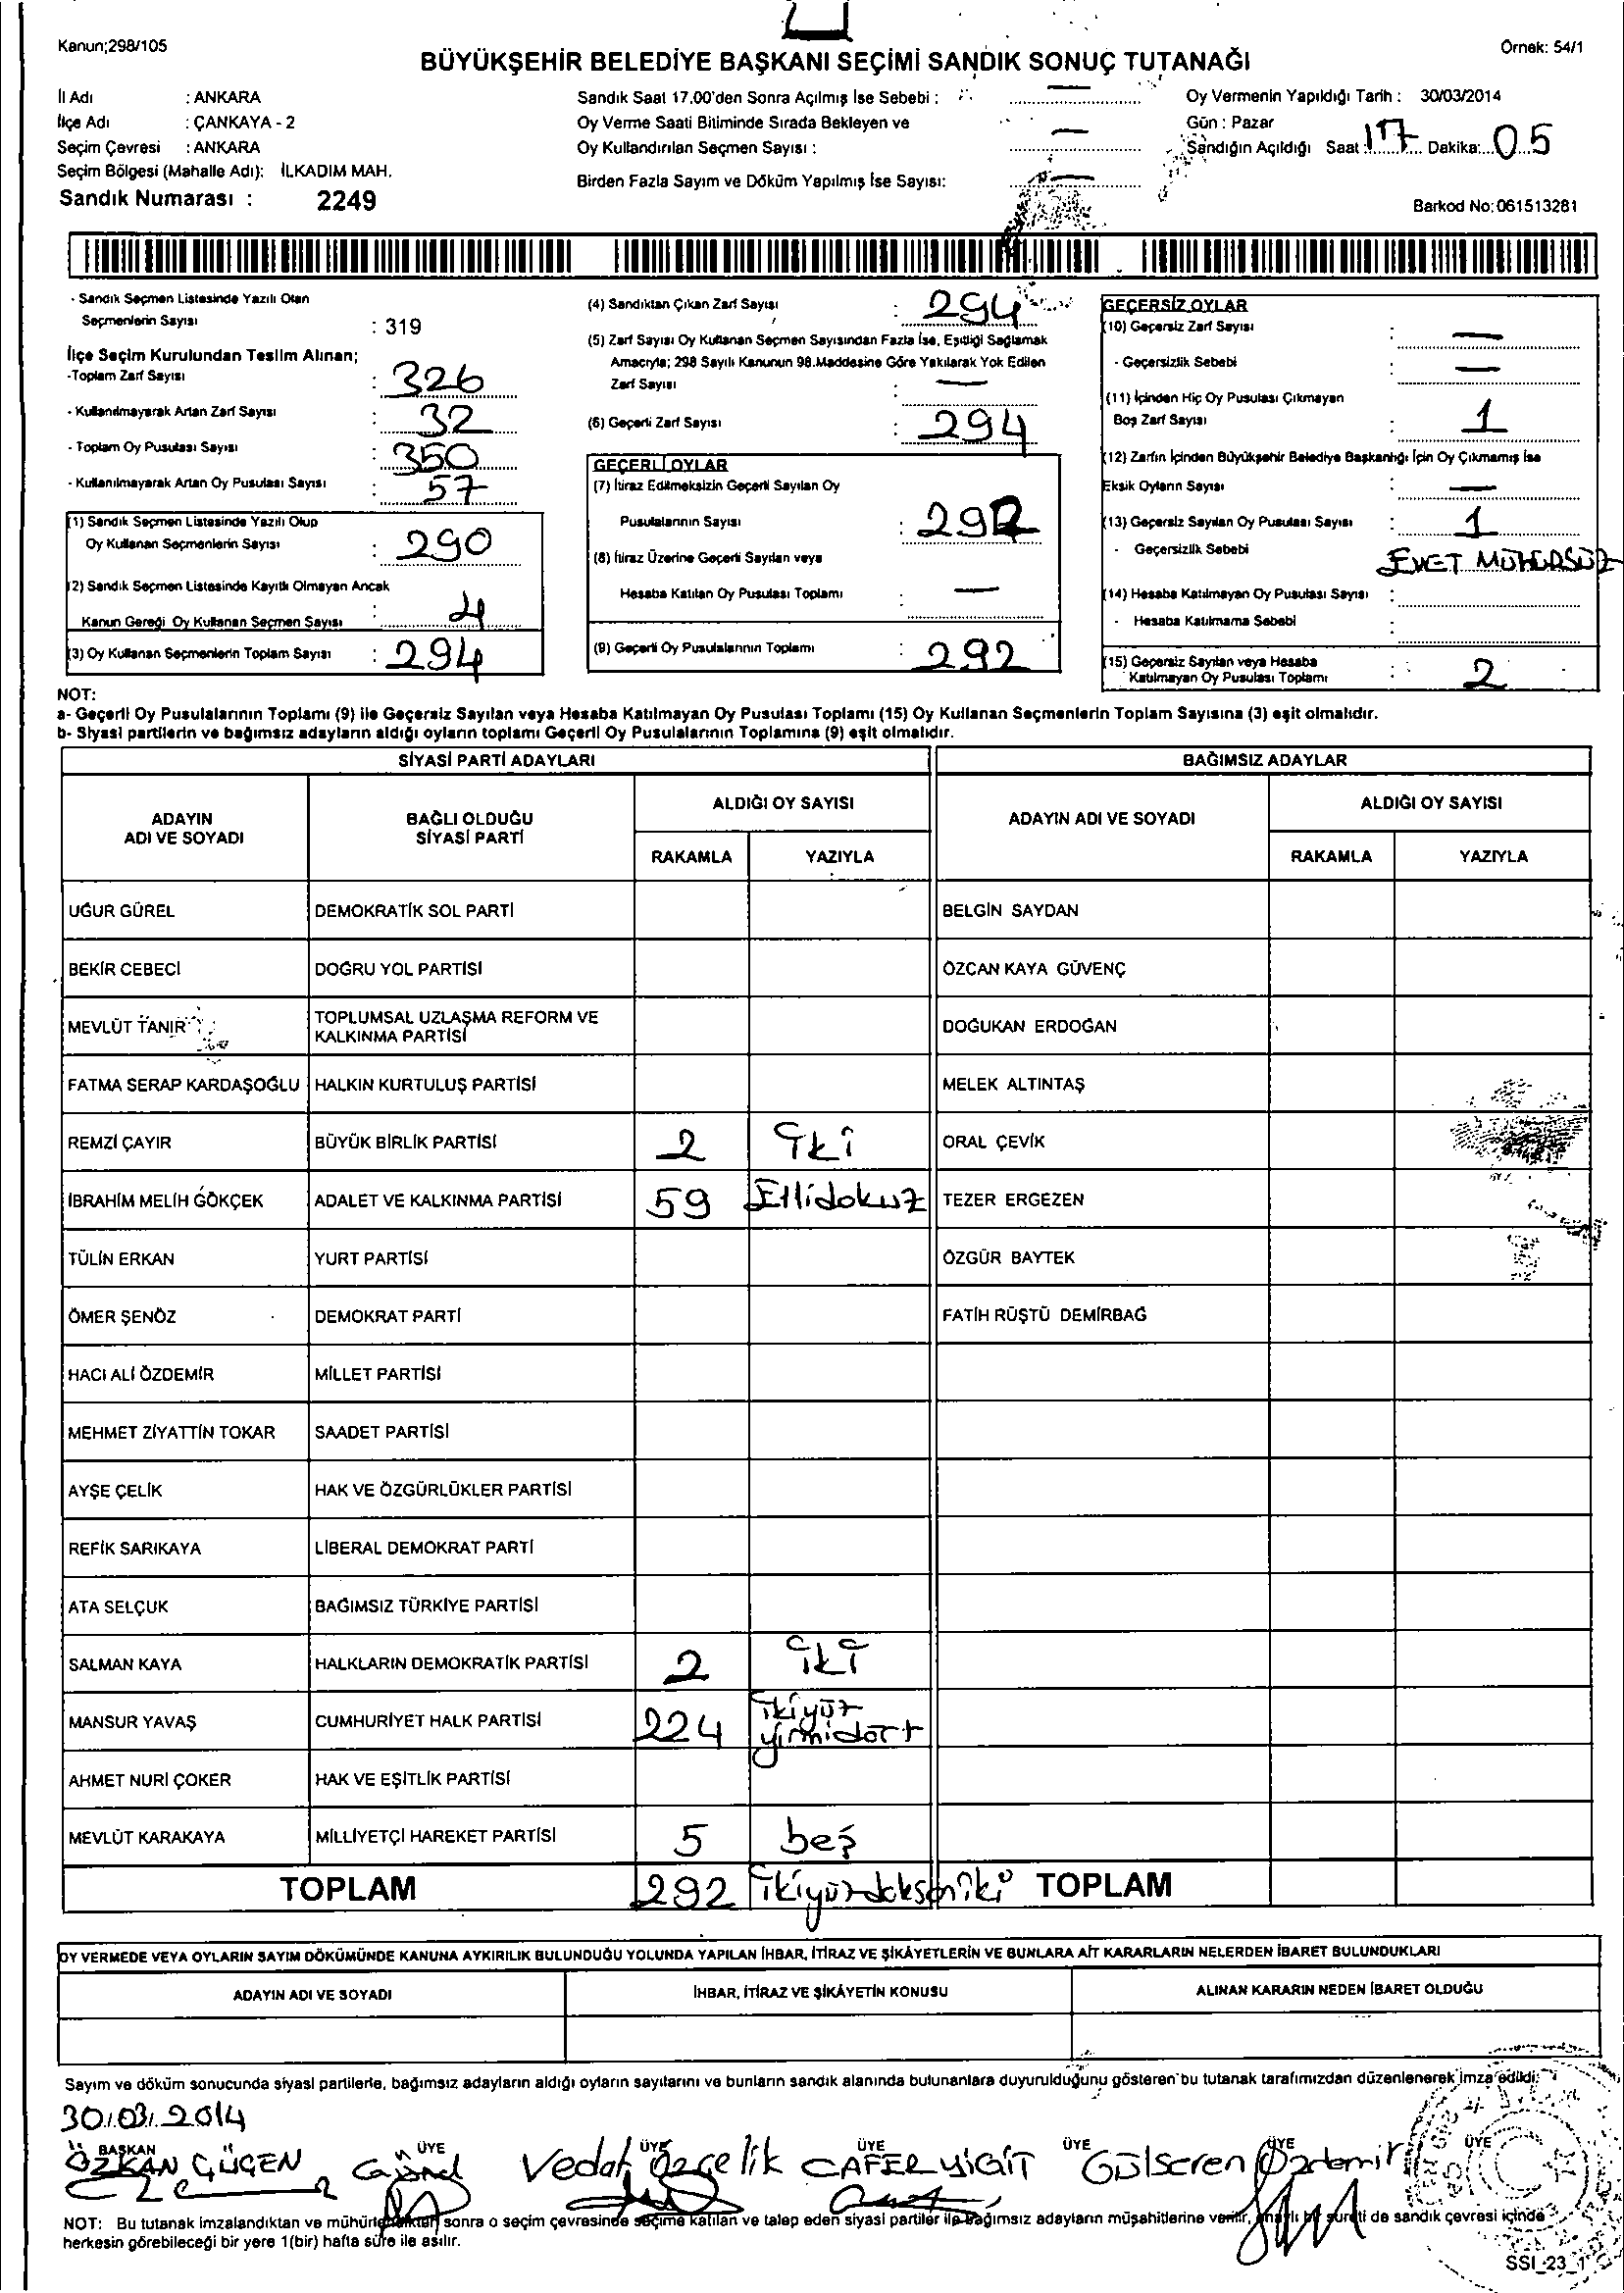 Kanun;298/105
Örnek: 54/1
BÜYÜKŞEHİR BELEDİYE BAŞKANI SEÇİMİ SANDIK SONUÇ TUTANAĞI
İl Adı : ANKARA
İlçe Adı : ÇANKAYA - 2
Seçim Çevresi : ANKARA
Seçim Bölgesi (Mahalle Adı): İLKADIM MAH.
Sandık Numarası : 2249
Sandık Saat 17.00'den Sonra Açılmış İse Sebebi : —
Oy Verme Saati Bitiminde Sırada Bekleyen ve
Oy Kullandırılan Seçmen Sayısı : —
Birden Fazla Sayım ve Döküm Yapılmış İse Sayısı: —
Oy Vermenin Yapıldığı Tarih : 30/03/2014
Gün : Pazar
Sandığın Açıldığı Saat : 17 Dakika: 05
Barkod No:061513281
- Sandık Seçmen Listesinde Yazılı Olan
Seçmenlerin Sayısı : 319
İlçe Seçim Kurulundan Teslim Alınan;
-Toplam Zarf Sayısı : 326
- Kullanılmayarak Artan Zarf Sayısı : 32
- Toplam Oy Pusulası Sayısı : 350
- Kullanılmayarak Artan Oy Pusulası Sayısı : 57
(1) Sandık Seçmen Listesinde Yazılı Olup
Oy Kullanan Seçmenlerin Sayısı : 290
(2) Sandık Seçmen Listesinde Kayıtlı Olmayan Ancak
Kanun Gereği Oy Kullanan Seçmen Sayısı : 4
(3) Oy Kullanan Seçmenlerin Toplam Sayısı : 294
(4) Sandıktan Çıkan Zarf Sayısı : 294
(5) Zarf Sayısı Oy Kullanan Seçmen Sayısından Fazla İse, Eşitliği Sağlamak
Amacıyla; 298 Sayılı Kanunun 98.Maddesine Göre Yakılarak Yok Edilen
Zarf Sayısı : —
(6) Geçerli Zarf Sayısı : 294
GEÇERLİ OYLAR
(7) İtiraz Edilmeksizin Geçerli Sayılan Oy
Pusulalarının Sayısı : 292
(8) İtiraz Üzerine Geçerli Sayılan veya
Hesaba Katılan Oy Pusulası Toplamı : —
(9) Geçerli Oy Pusulalarının Toplamı : 292
GEÇERSİZ OYLAR
(10) Geçersiz Zarf Sayısı : —
- Geçersizlik Sebebi : —
(11) İçinden Hiç Oy Pusulası Çıkmayan
Boş Zarf Sayısı : 1
(12) Zarfın İçinden Büyükşehir Belediye Başkanlığı İçin Oy Çıkmamış İse
Eksik Oyların Sayısı : —
(13) Geçersiz Sayılan Oy Pusulası Sayısı : 1
- Geçersizlik Sebebi EVET MÜHÜRSÜZ
(14) Hesaba Katılmayan Oy Pusulası Sayısı :
- Hesaba Katılmama Sebebi :
(15) Geçersiz Sayılan veya Hesaba
Katılmayan Oy Pusulası Toplamı : 2
NOT:
a- Geçerli Oy Pusulalarının Toplamı (9) ile Geçersiz Sayılan veya Hesaba Katılmayan Oy Pusulası Toplamı (15) Oy Kullanan Seçmenlerin Toplam Sayısına (3) eşit olmalıdır.
b- Siyasi partilerin ve bağımsız adayların aldığı oyların toplamı Geçerli Oy Pusulalarının Toplamına (9) eşit olmalıdır.
SİYASİ PARTİ ADAYLARI BAĞIMSIZ ADAYLAR
ADAYIN
ADI VE SOYADI
BAĞLI OLDUĞU
SİYASİ PARTİ
ALDIĞI OY SAYISI
RAKAMLA YAZIYLA
ADAYIN ADI VE SOYADI
ALDIĞI OY SAYISI
RAKAMLA YAZIYLA
UĞUR GÜREL DEMOKRATİK SOL PARTİ BELGİN SAYDAN
BEKİR CEBECİ DOĞRU YOL PARTİSİ ÖZCAN KAYA GÜVENÇ
MEVLÜT TANIR TOPLUMSAL UZLAŞMA REFORM VE
KALKINMA PARTİSİ DOĞUKAN ERDOĞAN
FATMA SERAP KARDAŞOĞLU HALKIN KURTULUŞ PARTİSİ MELEK ALTINTAŞ
REMZİ ÇAYIR BÜYÜK BİRLİK PARTİSİ 2 iki ORAL ÇEVİK
İBRAHİM MELİH GÖKÇEK ADALET VE KALKINMA PARTİSİ 59 Ellidokuz TEZER ERGEZEN
TÜLİN ERKAN YURT PARTİSİ ÖZGÜR BAYTEK
ÖMER ŞENÖZ DEMOKRAT PARTİ FATİH RÜŞTÜ DEMİRBAĞ
HACI ALİ ÖZDEMİR MİLLET PARTİSİ
MEHMET ZİYATTİN TOKAR SAADET PARTİSİ
AYŞE ÇELİK HAK VE ÖZGÜRLÜKLER PARTİSİ
REFİK SARIKAYA LİBERAL DEMOKRAT PARTİ
ATA SELÇUK BAĞIMSIZ TÜRKİYE PARTİSİ
SALMAN KAYA HALKLARIN DEMOKRATİK PARTİSİ 2 iki
MANSUR YAVAŞ CUMHURİYET HALK PARTİSİ 224 ikiyüz
yirmidört
AHMET NURİ ÇOKER HAK VE EŞİTLİK PARTİSİ
MEVLÜT KARAKAYA MİLLİYETÇİ HAREKET PARTİSİ 5 beş
TOPLAM 292 ikiyüzdoksaniki TOPLAM
OY VERMEDE VEYA OYLARIN SAYIM DÖKÜMÜNDE KANUNA AYKIRILIK BULUNDUĞU YOLUNDA YAPILAN İHBAR, İTİRAZ VE ŞİKÂYETLERİN VE BUNLARA AİT KARARLARIN NELERDEN İBARET BULUNDUKLARI
ADAYIN ADI VE SOYADI İHBAR, İTİRAZ VE ŞİKÂYETİN KONUSU ALINAN KARARIN NEDEN İBARET OLDUĞU
Sayım ve döküm sonucunda siyasi partilerle, bağımsız adayların aldığı oyların sayılarını ve bunların sandık alanında bulunanlara duyurulduğunu gösteren bu tutanak tarafımızdan düzenlenerek imza edildi.
30.03.2014
BAŞKAN ÜYE ÜYE ÜYE ÜYE ÜYE ÜYE
ÖZKAN GÜGEN Vedat Özçelik CAFER YİGİT Gülseren Özdemir
NOT: Bu tutanak imzalandıktan ve mühürlendikten sonra o seçim çevresinde seçime katılan ve talep eden siyasi partiler ile bağımsız adayların müşahitlerine verilir, onaylı bir sureti de sandık çevresi içinde
herkesin görebileceği bir yere 1(bir) hafta süre ile asılır.
SSI_23_1